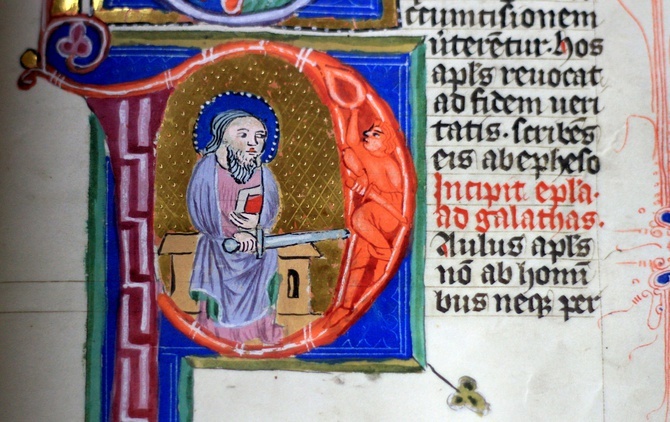 cumcisionem
uterētur. hos
apl's reuocat
ad fidem ueri
tatis. scribēs
eis ab epheso
Incipit epl'a.
ad galathas.
Aulus apl's
nō ab homi
bus neqz per